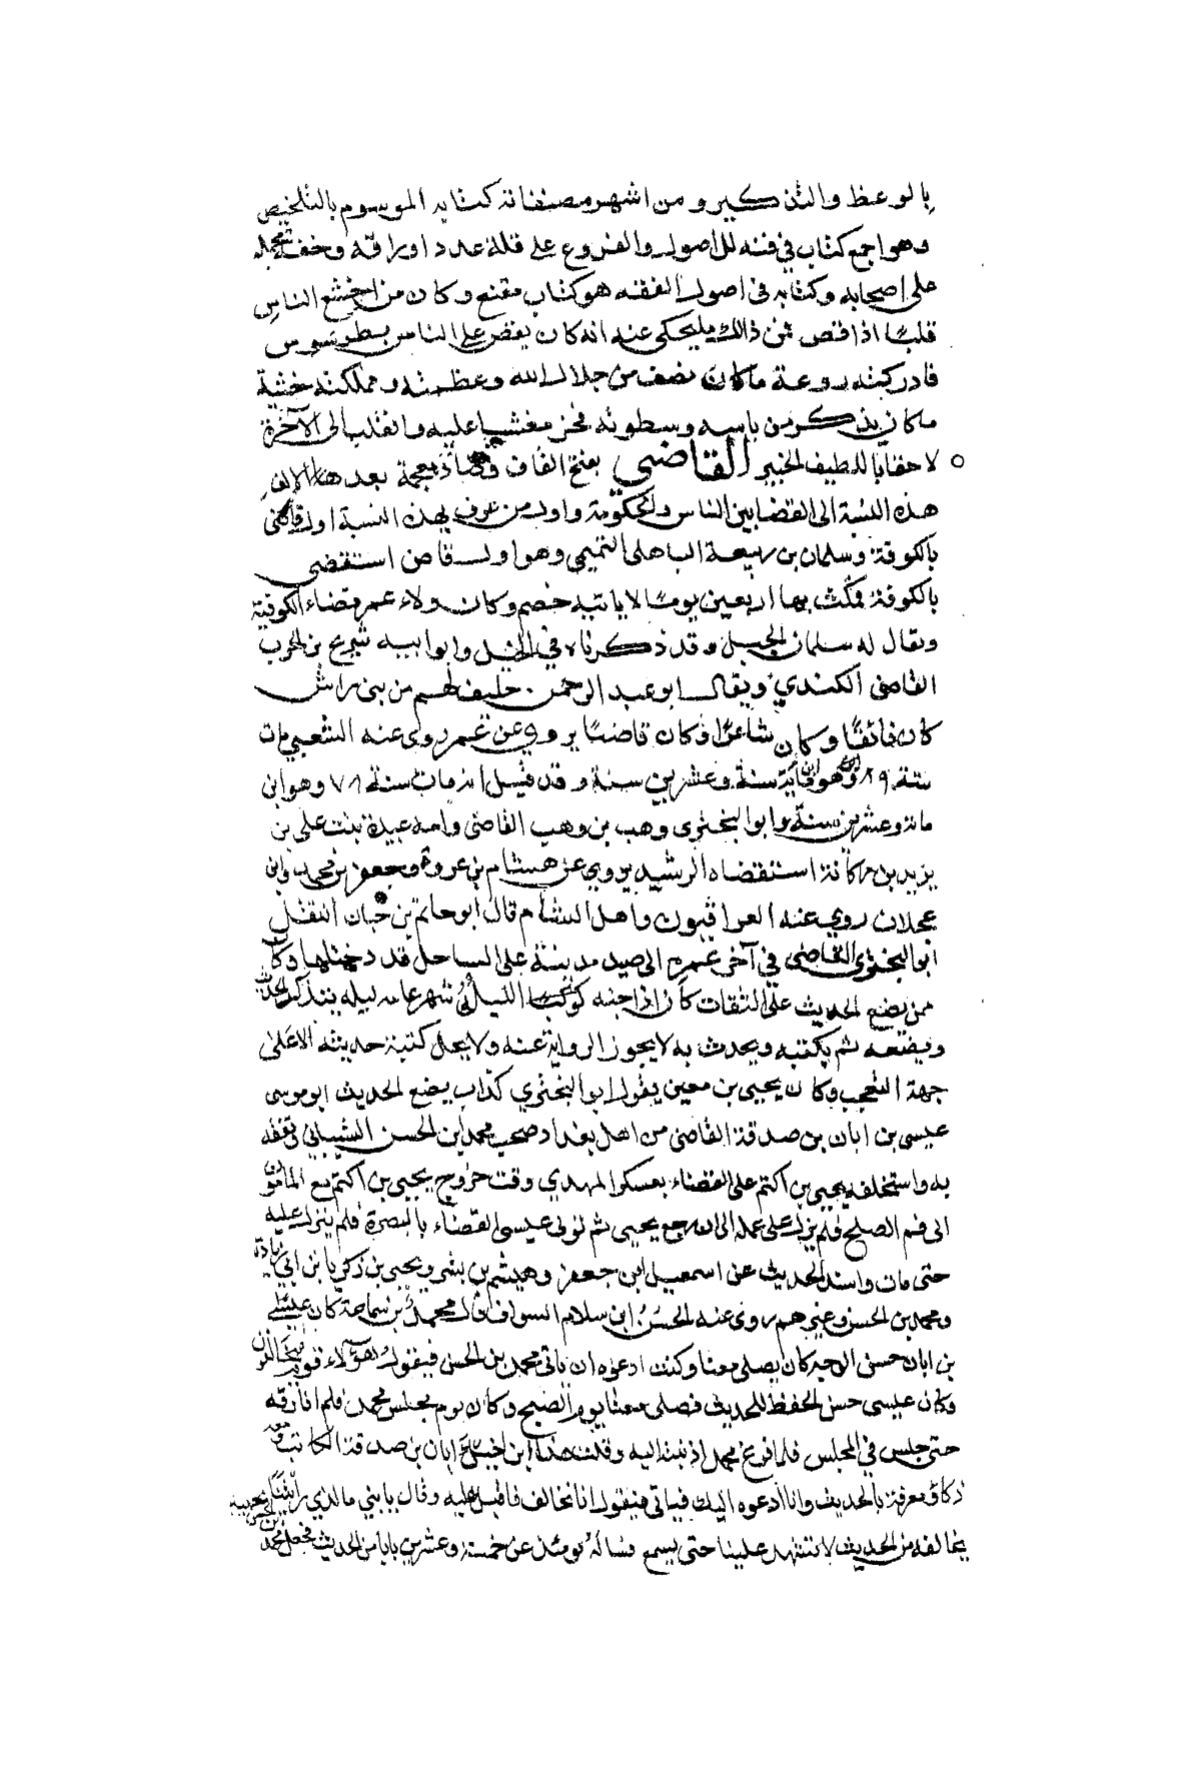 بالوعظ والتذكير و من اشهر مصنفاته كتابه الموسوم بالتلخيص
وهو اجمع كتاب في فنه للاصول والفروع على قلة عدد اوراقه وخفة محمله
على اصحابه وكتابه في اصول الفقه هو كتاب مقنع وكان من اخشع الناس
قلبا اذا قص فمن ذالك ما يحكى عنه انه كان يقص على الناس بطرسوس
فادركته روعة ما كان يصف من جلال الله وعظمته وملكته خشية
ما كان يذكر من باسه وسطوته فخر مغشيا عليه وانقلب الى الآخرة
لاحقا باللطيف الخبير القاضي بفتح القاف و ضاد معجمة بعد ها الالف
هذه النسبة الى القضا بين الناس والحكومة واول من عرف بهذه النسبة اول قاض
بالكوفة وسلمان بن ربيعة الباهلي التميمي وهو اول قاض استقضى
بالكوفة فمكث بها اربعين يوما لا ياتيه خصم وكان ولاه عمر قضاء الكوفة
ويقال له سلمان الخيل وقد ذكرناه في الخيل وابو اميه شريح بن الحرث
القاضي الكندي ويقال ابو عبد الرحمن حليف لهم من بني رائش
كان قائفا وكان شاعرا وكان قاضيا يروي عن عمر روى عنه الشعبي مات
سنة ٨٩ وهو ابن مائة سنة وعشرين سنة و قد قيل انه مات سنة ٧٨ وهو ابن
مائة وعشرين سنة وابو البختري وهب بن وهب القاضي وامه عبيدة بنت علي بن
يزيد بن ركانة استقضاه الرشيد يروي عن هشام بن عروة وجعفر بن محمد وابن
عجلان روي عنه العراقيون واهل الشام قال ابو حاتم بن حبان انتقل
ابو البختري القاضي في آخر عمره الى صيد مدينة على الساحل قد دخلتها وكان
ممن يضع الحديث على الثقات كان اذا جنه الليل شهر عامه ليله يتذكر الحديث
ويضعه ثم يكتبه ويحدث به لا يجوز الرواية عنه ولا يحل كتبة حديثه الا على
جهة التعجب وكان يحيى بن معين يقول ابو البختري كذاب يضع الحديث ابو موسى
عيسى بن ابان بن صدقة القاضي من اهل بغداد صحب محمد ابن الحسن الشيباني وتفقه
به واستخلفه يحيى بن اكثم على القضاء بعسكر المهدي وقت خروج يحيى بن اكثم مع المامون
الى فم الصلح فلم يزل على عمله الى ان رجع يحيى ثم تولى عيسى القضاء بالبصرة فلم يزل عليه
حتى مات واسند الحديث عن اسمعيل ابن جعفر وهشيم بن بشر ويحيى بن زكريا بن ابي زائدة
ومحمد بن الحسن وغيرهم روى عنه الحسن ابن سلام السواق قال محمد بن سماعة كان عيسى
بن ابان حسن الوجه كان يصلي معنا وكنت ادعوه ان ياتي محمد بن الحسن فيقول هؤلاء قوم يخالفون
وكان عيسى حسن الحفظ للحديث فصلى معنا يوم الصبح وكان يوم مجلس محمد فلم افارقه
حتى جلس في المجلس فلما فرغ محمد اذنيته اليه وقلت هذا ابن اخيك ابان بن صدقة الكاتب ومعه
ذكاء ومعرفة بالحديث وانا ادعوه اليك فياتي فيقول انا نخالف فاقبل عليه وقال يا بني ما لذي رايتنا
يخالفه من الحديث لا تشهد علينا حتى يسمع فساله يومئذ عن خمسة وعشرين بابا من الحديث فجعل محمد